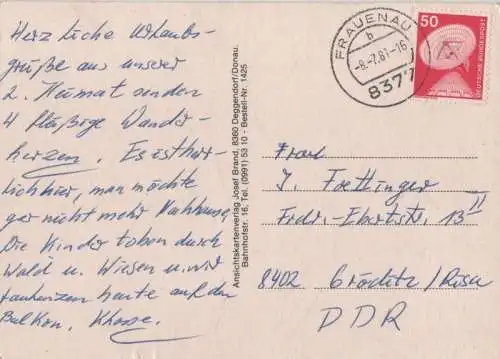 Herzliche Urlaubs-
grüße aus unserer
2. Heimat senden
4 fleißige Wander-
herzen. Es ist herr-
lich hier, man möchte
gar nicht mehr nach Hause.
Die Kinder toben durch
Wald u. Wiesen u. wir
faulenzen heute auf dem
Balkon.
Ansichtskartenverlag Josef Brand, 8360 Deggendorf/Donau.
Bahnhofstr. 16, Tel. (0991) 53 10 - Bestell-Nr. 1425
FRAUENAU
b
-8.-7.81-16
8377
50
DEUTSCHE BUNDESPOST
J. Foettinger
Frdr.-Ebertstr. 13 II
8402 Gröditz/Riesa
DDR